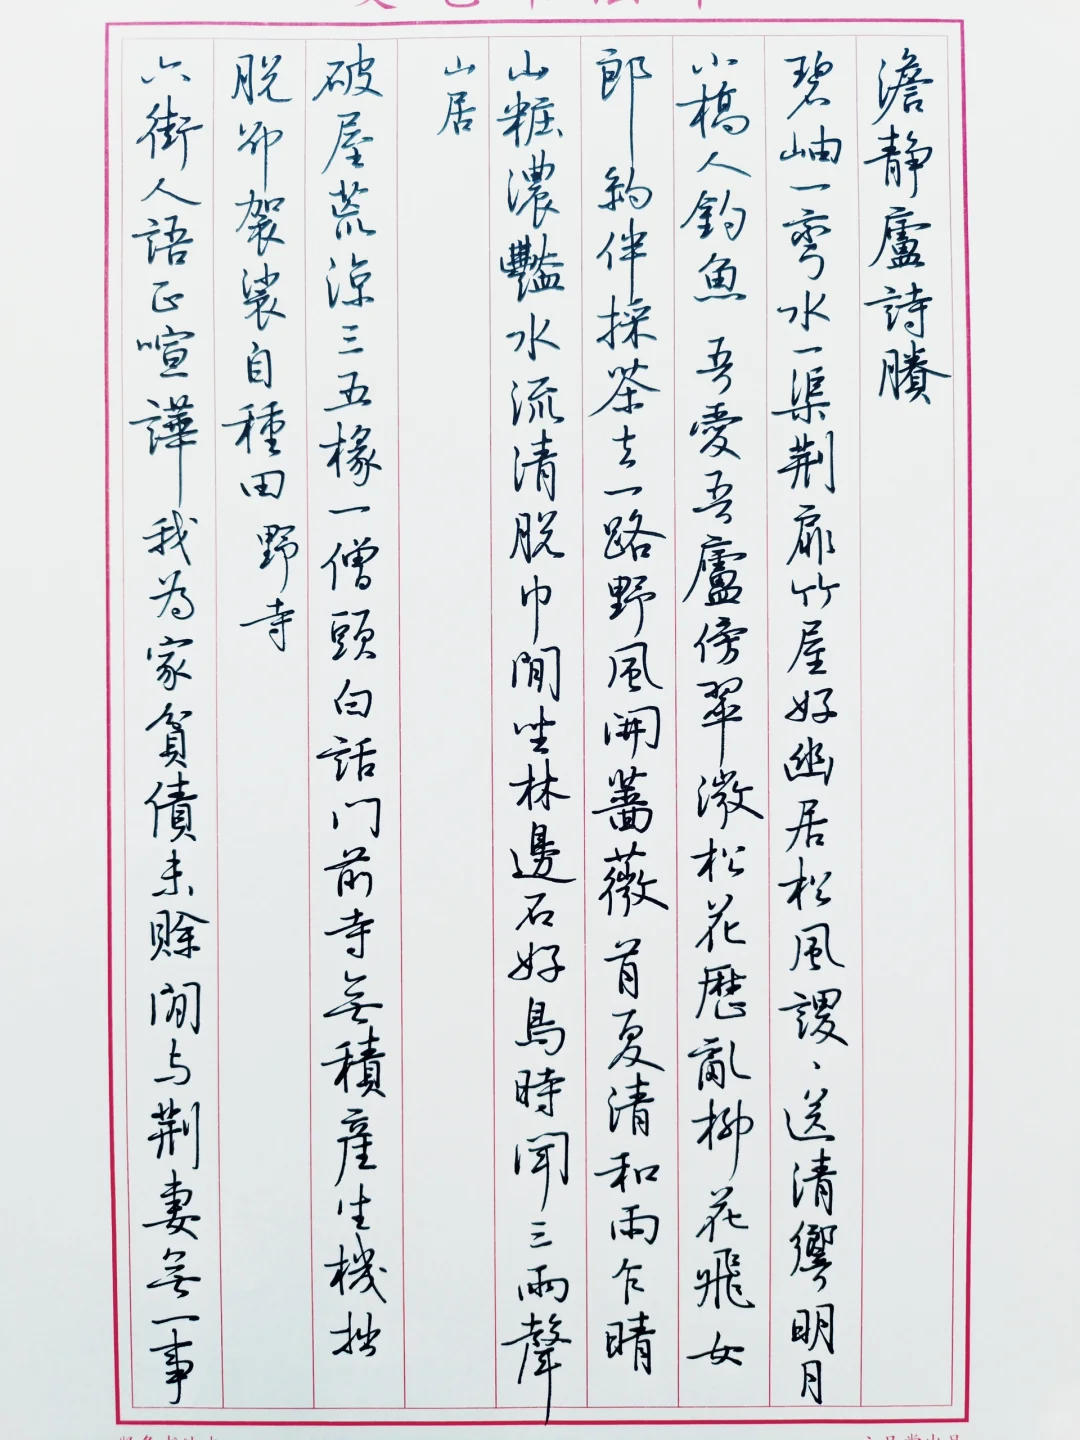 澹靜廬詩賸
碧岫一彎水一渠荆扉竹屋好幽居松風謖、送清響明月
小橋人釣魚 吾愛吾廬傍翠微松花歷亂柳花飛女
郎約伴採茶去一路野風開薔薇 首夏清和雨乍晴
山粧濃豔水流清脱巾閒坐林邊石好鳥時聞三兩聲
山居
破屋荒涼三五椽一僧頭白話门前寺無積產生機拙
脱卻袈裟自種田 野寺
六街人語正喧譁 我為家貧債未賒閒与荆妻無一事